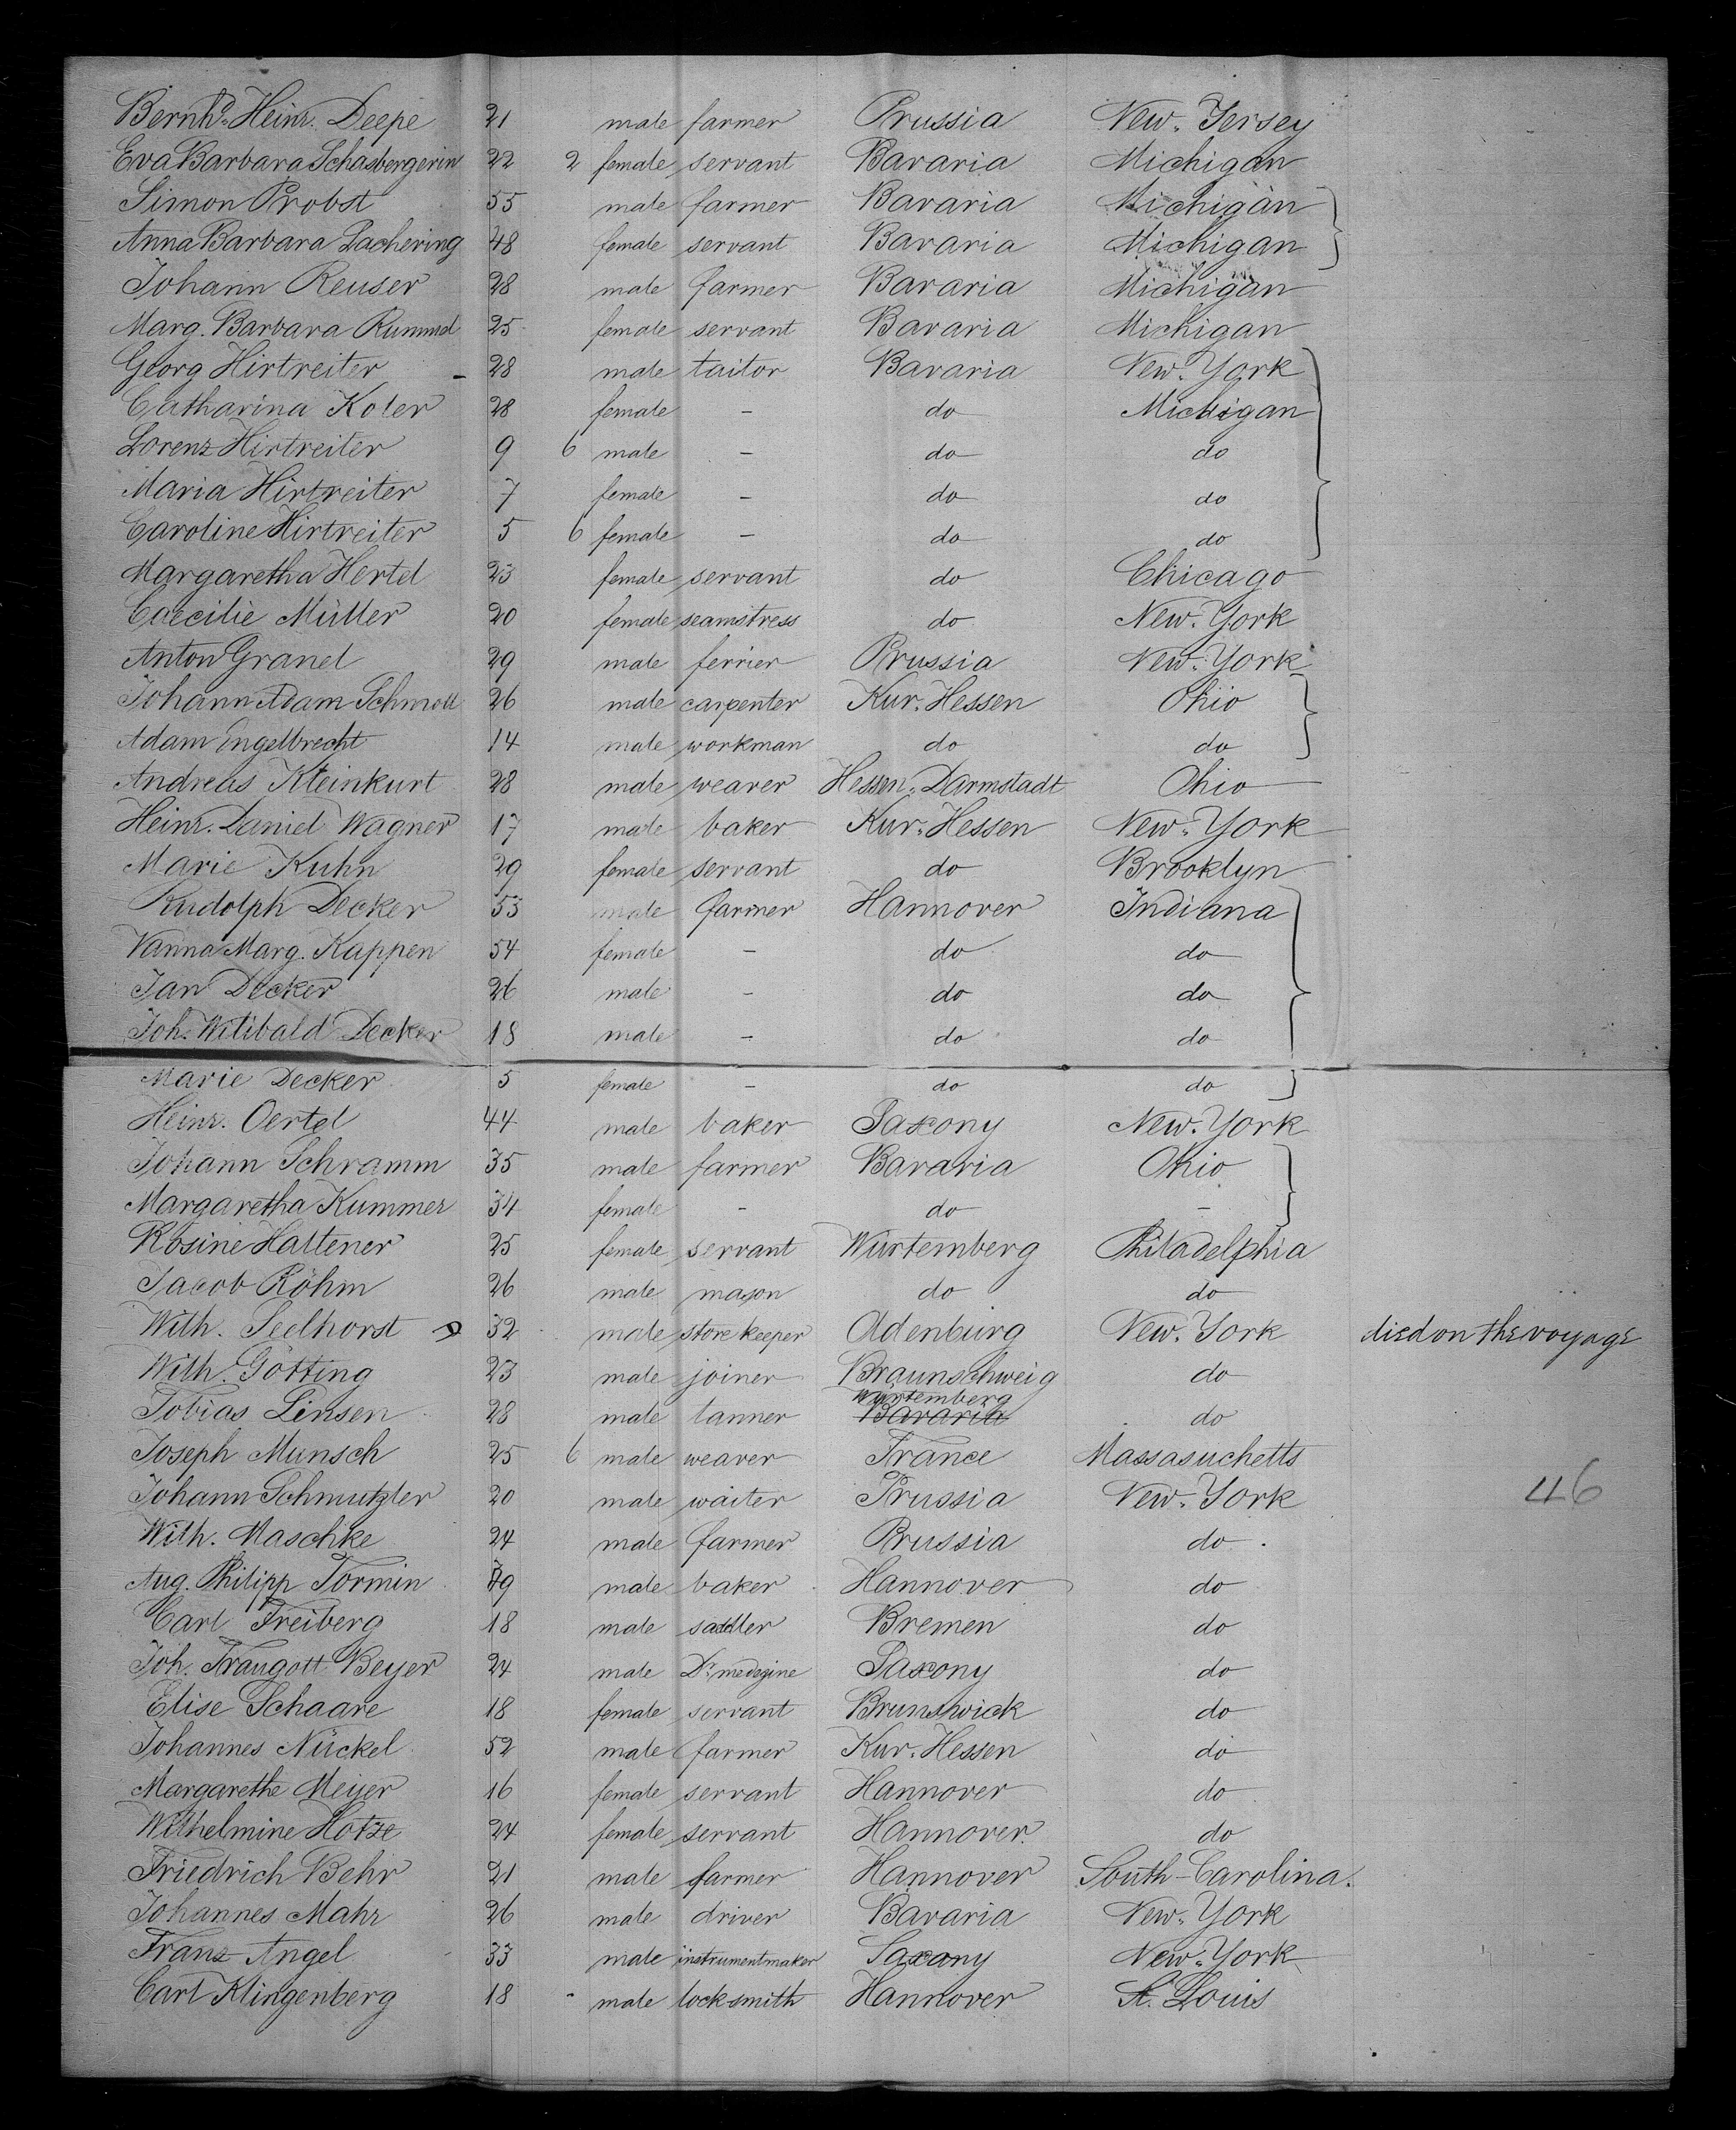 Bernh. Heinr. Deepe 21 male farmer Prussia New-Jersey
Eva Barbara Schasbergerin 22 2 female servant Bavaria Michigan
Simon Probst 55 male farmer Bavaria Michigan
Anna Barbara Lachering 48 female servant Bavaria Michigan
Johann Reuser 28 male farmer Bavaria Michigan
Marg. Barbara Rummel 25 female servant Bavaria Michigan
Georg Hirtreiter - 28 male tailor Bavaria New-York
Catharina Koler 28 female - do Michigan
Lorenz Hirtreiter 9 6 male - do do
Maria Hirtreiter 7 female - do do
Caroline Hirtreiter 5 6 female - do do
Margaretha Hertel 23 female servant do Chicago
Caecilie Müller 20 female seamstress do New-York
Anton Granel 29 male ferrier Prussia New-York
Johann Adam Schmoll 26 male carpenter Kur-Hessen Ohio
Adam Engelbrecht 14 male workman do do
Andreas Kleinkurt 28 male weaver Hessen-Darmstadt Ohio
Heinr. Daniel Wagner 17 male baker Kur-Hessen New-York
Marie Kuhn 29 female servant do Brooklyn
Rudolph Decker 53 male farmer Hannover Indiana
Vanna Marg. Kappen 54 female - do do
Jan Decker 26 male - do do
Joh. Willibald Decker 18 male - do do
Marie Decker 5 female - do do
Heinr. Oertel 44 male baker Saxony New-York
Johann Schramm 35 male farmer Bavaria Ohio
Margaretha Kummer 34 female - do -
Rosine Haltener 25 female servant Würtemberg Philadelphia
Jacob Röhm 26 male mason do do
Wilh. Seelhorst 32 male storekeeper Oldenburg New-York died on the voyage
Wilh. Götting 23 male joiner Braunschweig do
Tobias Linsen 28 male tanner Würtemberg Bavaria do
Joseph Munsch 25 6 male weaver France Massasuchetts
Johann Schmutzler 20 male waiter Prussia New-York 46
Wilh. Maschke 24 male farmer Prussia do
Aug. Philipp Tormin male baker Hannover do
Carl Freiberg 18 male saddler Bremen do
Joh. Traugott Beyer 24 male Dr. medezine Saxony do
Elise Schaare 18 female servant Brunswick do
Johannes Nückel 52 male farmer Kur-Hessen do
Margarethe Meyer 16 female servant Hannover do
Wilhelmine Hotze 24 female servant Hannover do
Friedrich Behr 21 male farmer Hannover South-Carolina.
Johannes Mahr 26 male driver Bavaria New-York
Franz Angel 33 male instrumentmaker Saxony New-York
Carl Klingenberg 18 male locksmith Hannover St. Louis